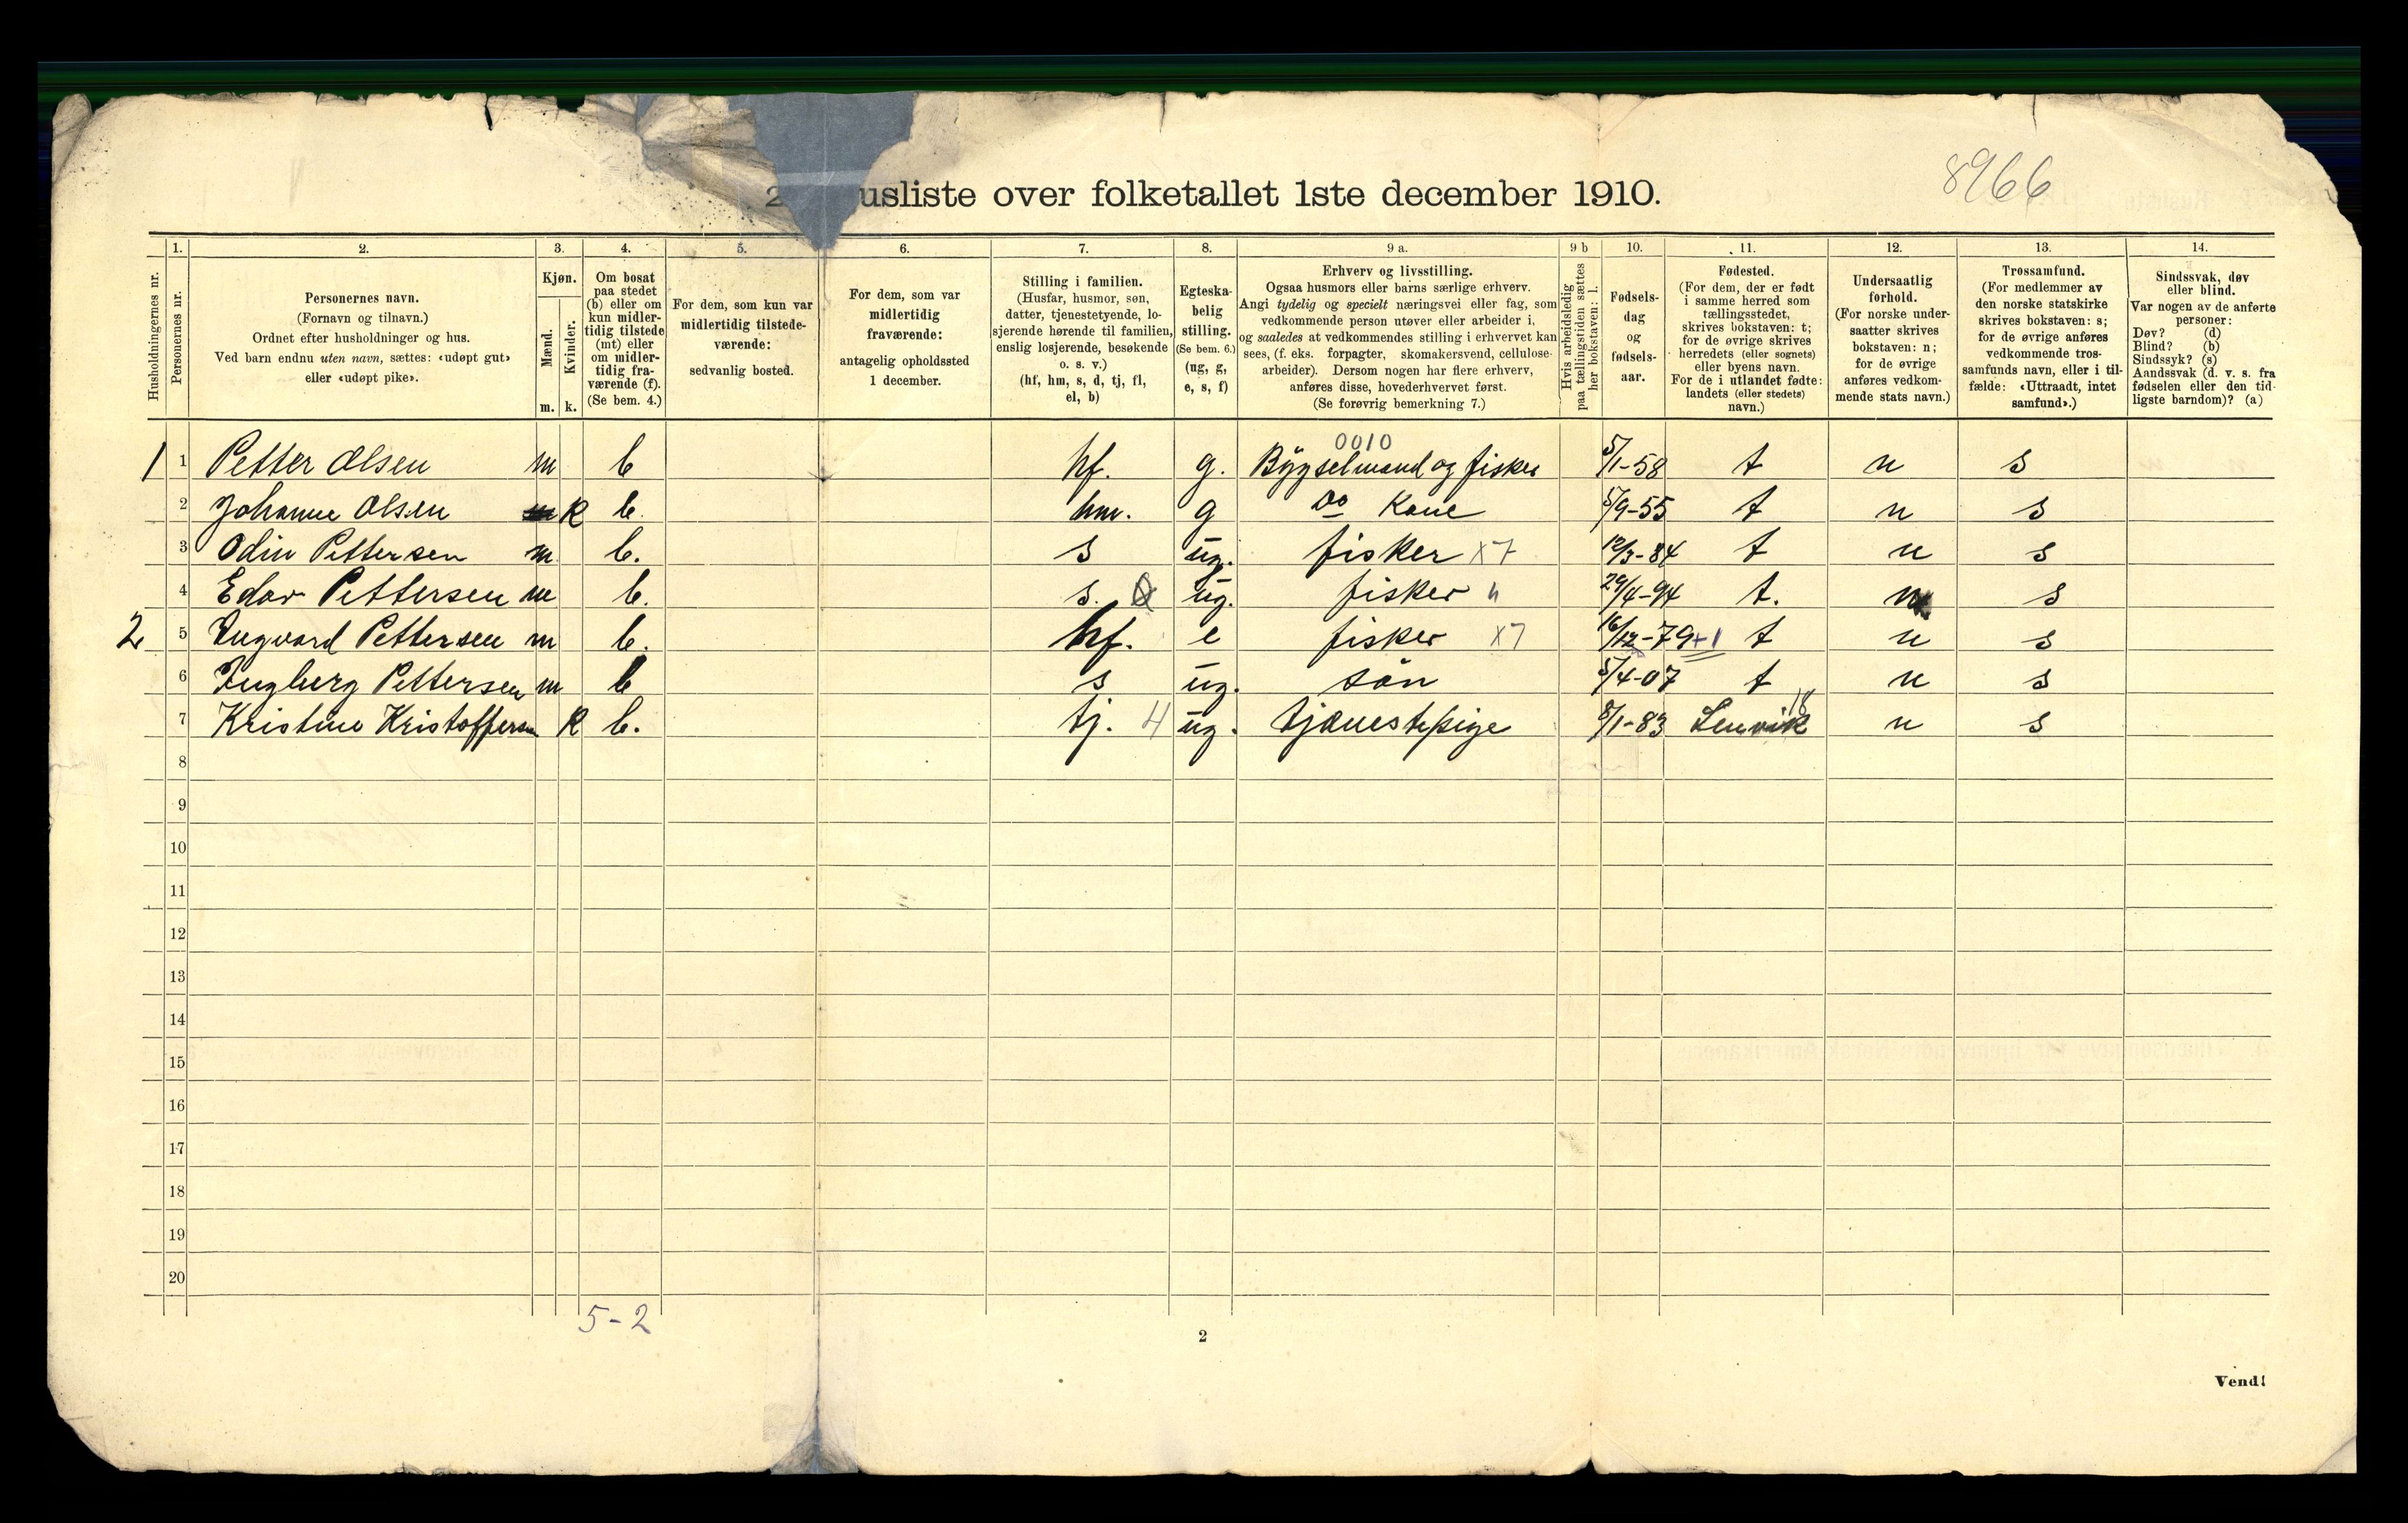 8966
2. Husliste over folketallet 1ste december 1910.
Husholdningernes nr.
1.
Personernes nr.
2.
Personernes navn.
(Fornavn og tilnavn.)
Ordnet efter husholdninger og hus.
Ved barn endnu uten navn, sættes: «udøpt gut»
eller «udøpt pike».
3.
Kjøn.
Mænd.
Kvinder.
m. k.
4.
Om bosat
paa stedet
(b) eller om
kun midler-
tidig tilstede
(mt) eller
om midler-
tidig fra-
værende (f).
(Se bem. 4.)
5.
For dem, som kun var
midlertidig tilstede-
værende:
sedvanlig bosted.
6.
For dem, som var
midlertidig
fraværende:
antagelig opholdssted
1 december.
7.
Stilling i familien.
(Husfar, husmor, søn,
datter, tjenestetyende, lo-
sjerende hørende til familien,
enslig losjerende, besøkende
o. s. v.)
(hf, hm, s, d, tj, fl,
el, b)
8.
Egteska-
belig
stilling.
(Se bem. 6.)
(ug, g,
e, s, f)
9 a.
Erhverv og livsstilling.
Ogsaa husmors eller barns særlige erhverv.
Angi tydelig og specielt næringsvei eller fag, som
vedkommende person utøver eller arbeider i,
og saaledes at vedkommendes stilling i erhvervet kan
sees, (f. eks. forpagter, skomakersvend, cellulose-
arbeider). Dersom nogen har flere erhverv,
anføres disse, hovederhvervet først.
(Se forøvrig bemerkning 7.)
9 b
Hvis arbeidsledig
paa tællingstiden sættes
her bokstaven: l.
10.
Fødsels-
dag
og
fødsels-
aar.
11.
Fødested.
(For dem, der er født
i samme herred som
tællingsstedet,
skrives bokstaven: t;
for de øvrige skrives
herredets (eller sognets)
eller byens navn.
For de i utlandet fødte:
landets (eller stedets)
navn.)
12.
Undersaatlig
forhold.
(For norske under-
saatter skrives
bokstaven: n;
for de øvrige
anføres vedkom-
mende stats navn.)
13.
Trossamfund.
(For medlemmer av
den norske statskirke
skrives bokstaven: s;
for de øvrige anføres
vedkommende tros-
samfunds navn, eller i til-
fælde: «Uttraadt, intet
samfund».)
14.
Sindssvak, døv
eller blind.
Var nogen av de anførte
personer:
Døv? (d)
Blind? (b)
Sindssyk? (s)
Aandssvak (d. v. s. fra
fødselen eller den tid-
ligste barndom)? (a)
0010
1 1 Petter Olsen m b hf. g. Bÿgselmand og fisker 5/1-58 t n s
2 Johanne Olsen k b. hm. g do Kone 5/9-55 t n s
3 Odin Pettersen m b. s ug. fisker x7 12/3-84 t n s
4 Edor Pettersen m b. s. ug. fisker " 29/4-94 t. n s
2 5 Ingvard Pettersen m b. hf. e fisker x7 16/12-79+1 t n s
6 Ingberg Pettersen m b s ug. sön 5/4-07 t n s
18
7 Kristine Kristoffersen k b. tj. 4 ug. tjenestepige 8/1-83 Lenvik n s
8
9
10
11
12
13
14
15
16
17
18
19
20
5-2
2
Vend!